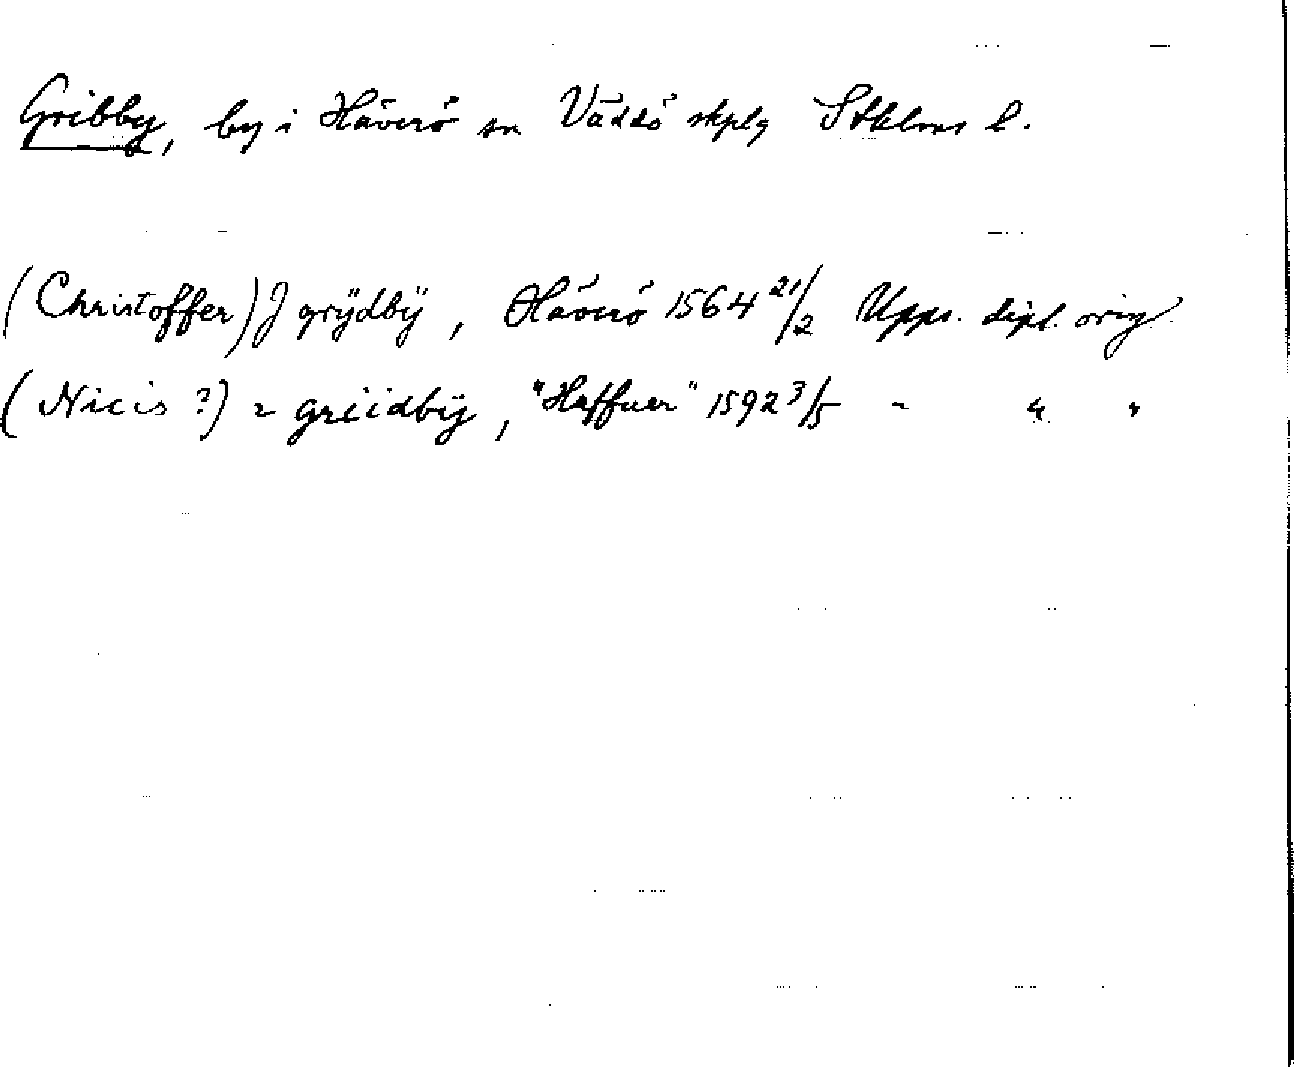 Gribby, by i Häverö sn Väddö skplg Sthlms l.
(Christoffer) J grÿdbÿ, Häverö 1564 21/2 Upps. dipl. orig
(Nicis ?) 2 griidbÿ, "Haffuer" 1592 3/5 " " "